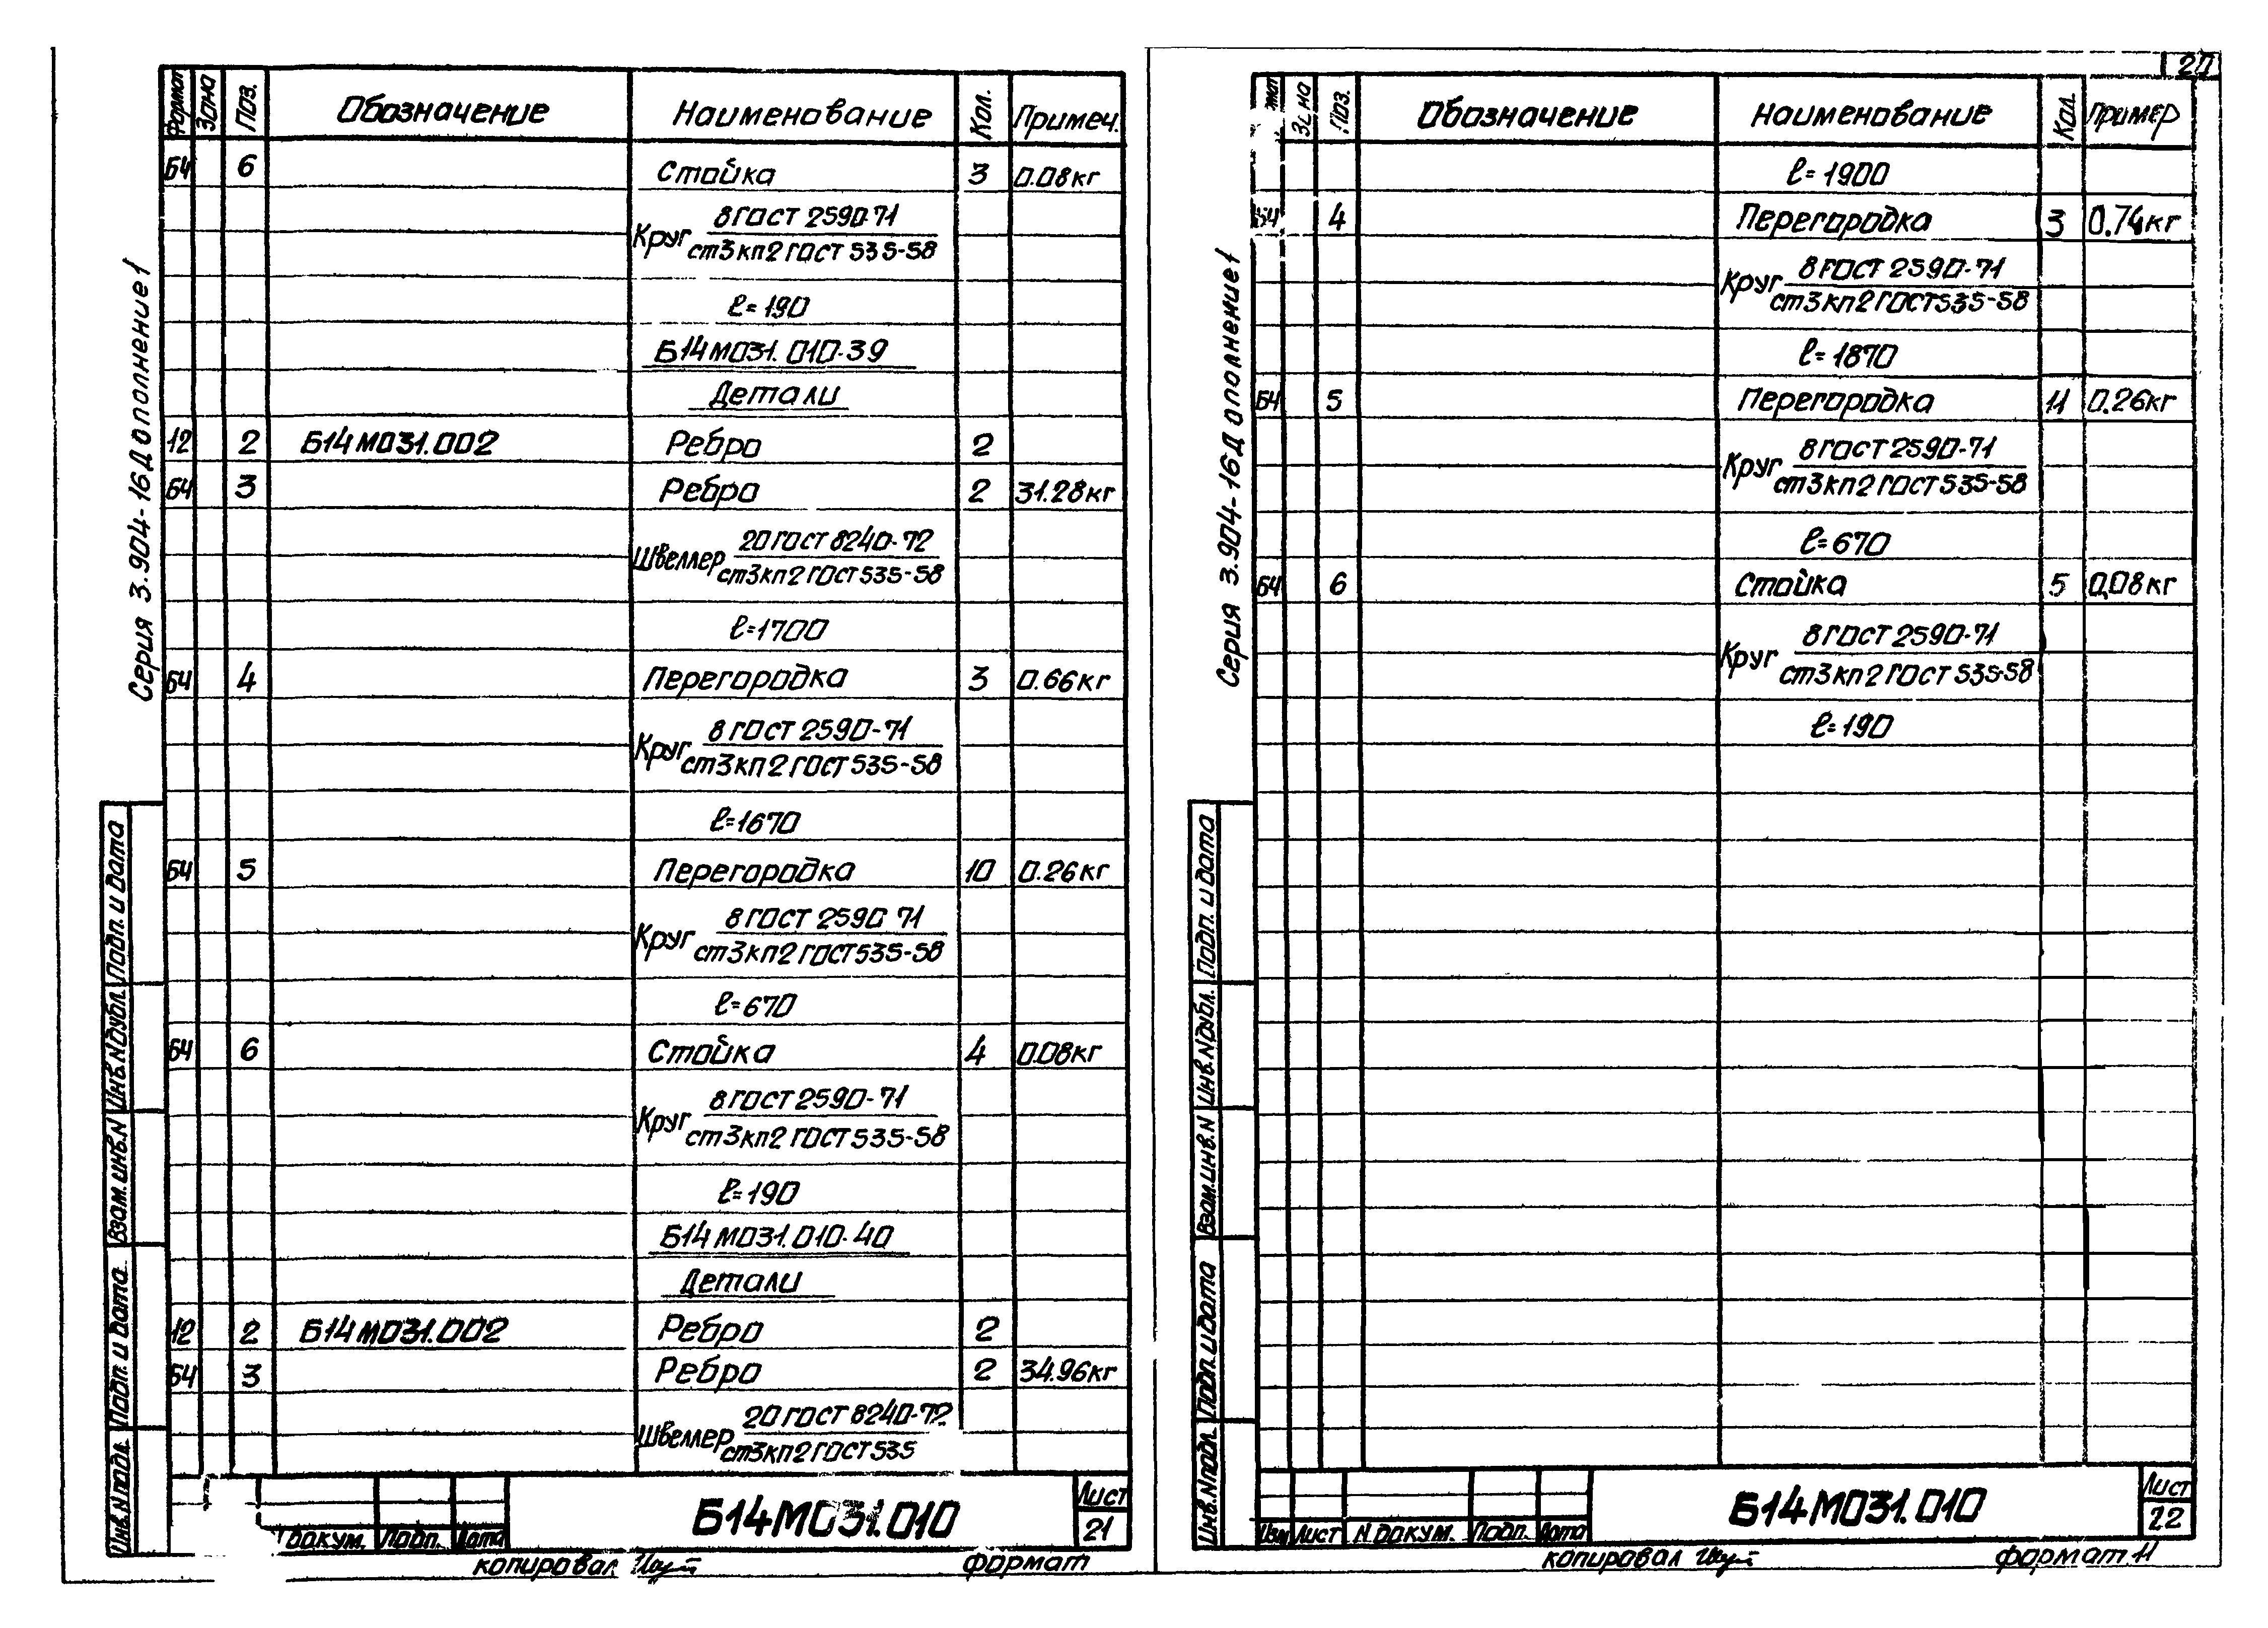 Формат Зона Поз. Обозначение Наименование Кол. Примеч.
Б4 6 Стойка 3 0.08кг
Круг 8 ГОСТ 2590-71
ст3кп2 ГОСТ 535-58
ℓ=190
Б14М031.010-39
Детали
12 2 Б14М031.002 Ребро 2
Б4 3 Ребро 2 31.28кг
Швеллер 20 ГОСТ 8240-72
ст3кп2 ГОСТ 535-58
ℓ=1700
Б4 4 Перегородка 3 0.66кг
Круг 8 ГОСТ 2590-71
ст3кп2 ГОСТ 535-58
ℓ=1670
Б4 5 Перегородка 10 0.26кг
Круг 8 ГОСТ 2590 71
ст3кп2 ГОСТ 535-58
ℓ=670
Б4 6 Стойка 4 0.08кг
Круг 8 ГОСТ 2590-71
ст3кп2 ГОСТ 535-58
ℓ=190
Б14М031.010-40
Детали
12 2 Б14М031.002 Ребро 2
Б4 3 Ребро 2 34.96кг
Швеллер 20 ГОСТ 8240-72
ст3кп2 ГОСТ 535
Серия 3.904-16 Дополнение 1
Подп. и дата
Инв.N дубл.
Взам.инв.N
Подп. и дата
Инв.N подл.
докум. Подп. Дата
Б14М031.010
Лист
21
копировал
формат
20
Зона Поз. Обозначение Наименование Кол. Пример
ℓ=1900
Б4 4 Перегородка 3 0.74кг
Круг 8 ГОСТ 2590-71
ст3кп2 ГОСТ 535-58
ℓ=1870
Б4 5 Перегородка 11 0.26кг
Круг 8 ГОСТ 2590-71
ст3кп2 ГОСТ 535-58
ℓ=670
Б4 6 Стойка 5 0,08кг
Круг 8 ГОСТ 2590-71
ст3кп2 ГОСТ 535-58
ℓ=190
Серия 3.904-16 Дополнение 1
Подп. и дата
Инв.N дубл.
Взам.инв.N
Подп. и дата
Инв.N подл.
Изм Лист N. докум. Подп. Дата
Б14М031.010
Лист
22
копировал
формат 11